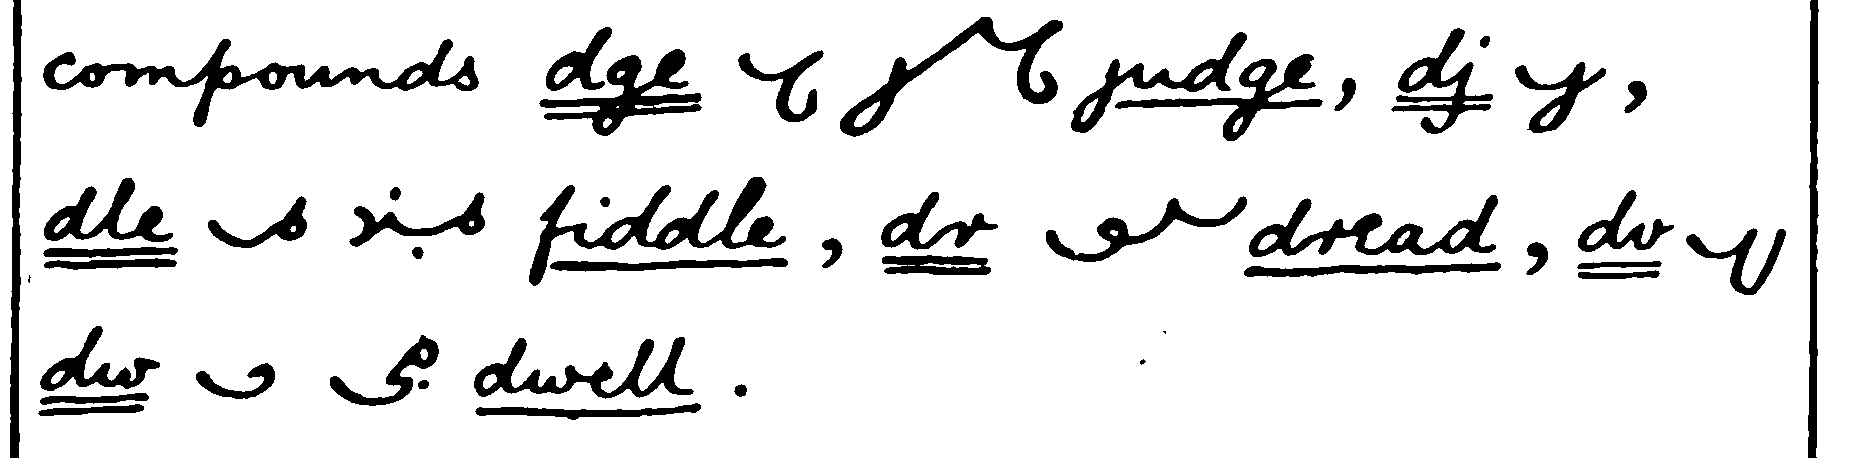 compounds dge judge, dj ,
dle fiddle, dr dread, dv
dw dwell.